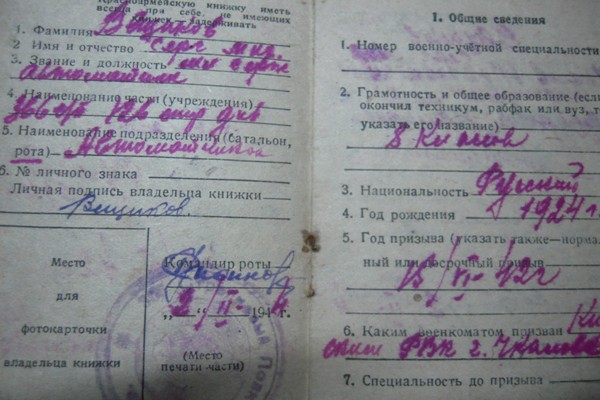 Красноармейскую книжку иметь
всегда при себе, не имеющих
книжек задерживать
1. Фамилия Вещиков
2 Имя и отчество Серг
3. Звание и должность мл серж
автоматчик
4. Наименование части (учреждения)
366 с/п 126
5. Наименование подразделения (батальон,
рота) Автоматчиков
6. № личного знака
Личная подпись владельца книжки
Вещиков.
Место
для
фотокарточки
владельца книжки
Командир роты
„2/II 194 г.
(Место
печати части)
I. Общие сведения
1. Номер военно-учётной специальности
2. Грамотность и общее образование (если
окончил техникум, рабфак или вуз, то
указать его название)
8 классов
3. Национальность Русский
4. Год рождения 1924 г.
5. Год призыва (указать также—нормаль
ный или досрочный призыв
15/VI-42г
6. Каким военкоматом призван
РВК г. Чкалов
7. Специальность до призыва